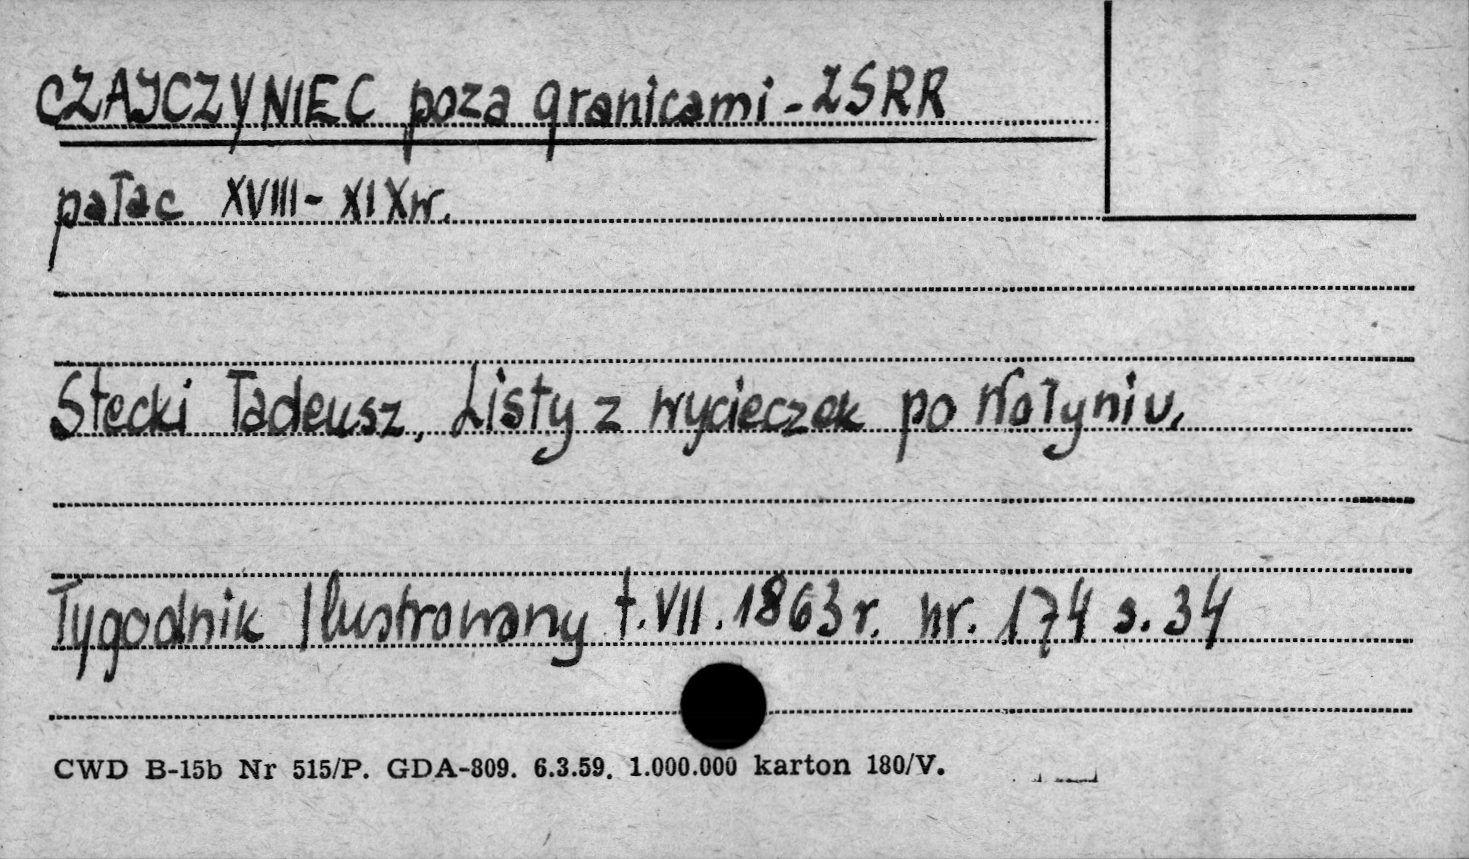 CZAJCZYNIEC poza granicami - ZSRR
pałac XVIII - XIX w.
Stecki Tadeusz, Listy z wycieczek po Wołyniu,
Tygodnik Ilustrowany t. VII. 1863 r. nr. 174 s. 34
CWD B-15b Nr 515/P. GDA-809. 6.3.59. 1.000.000 karton 180/V.